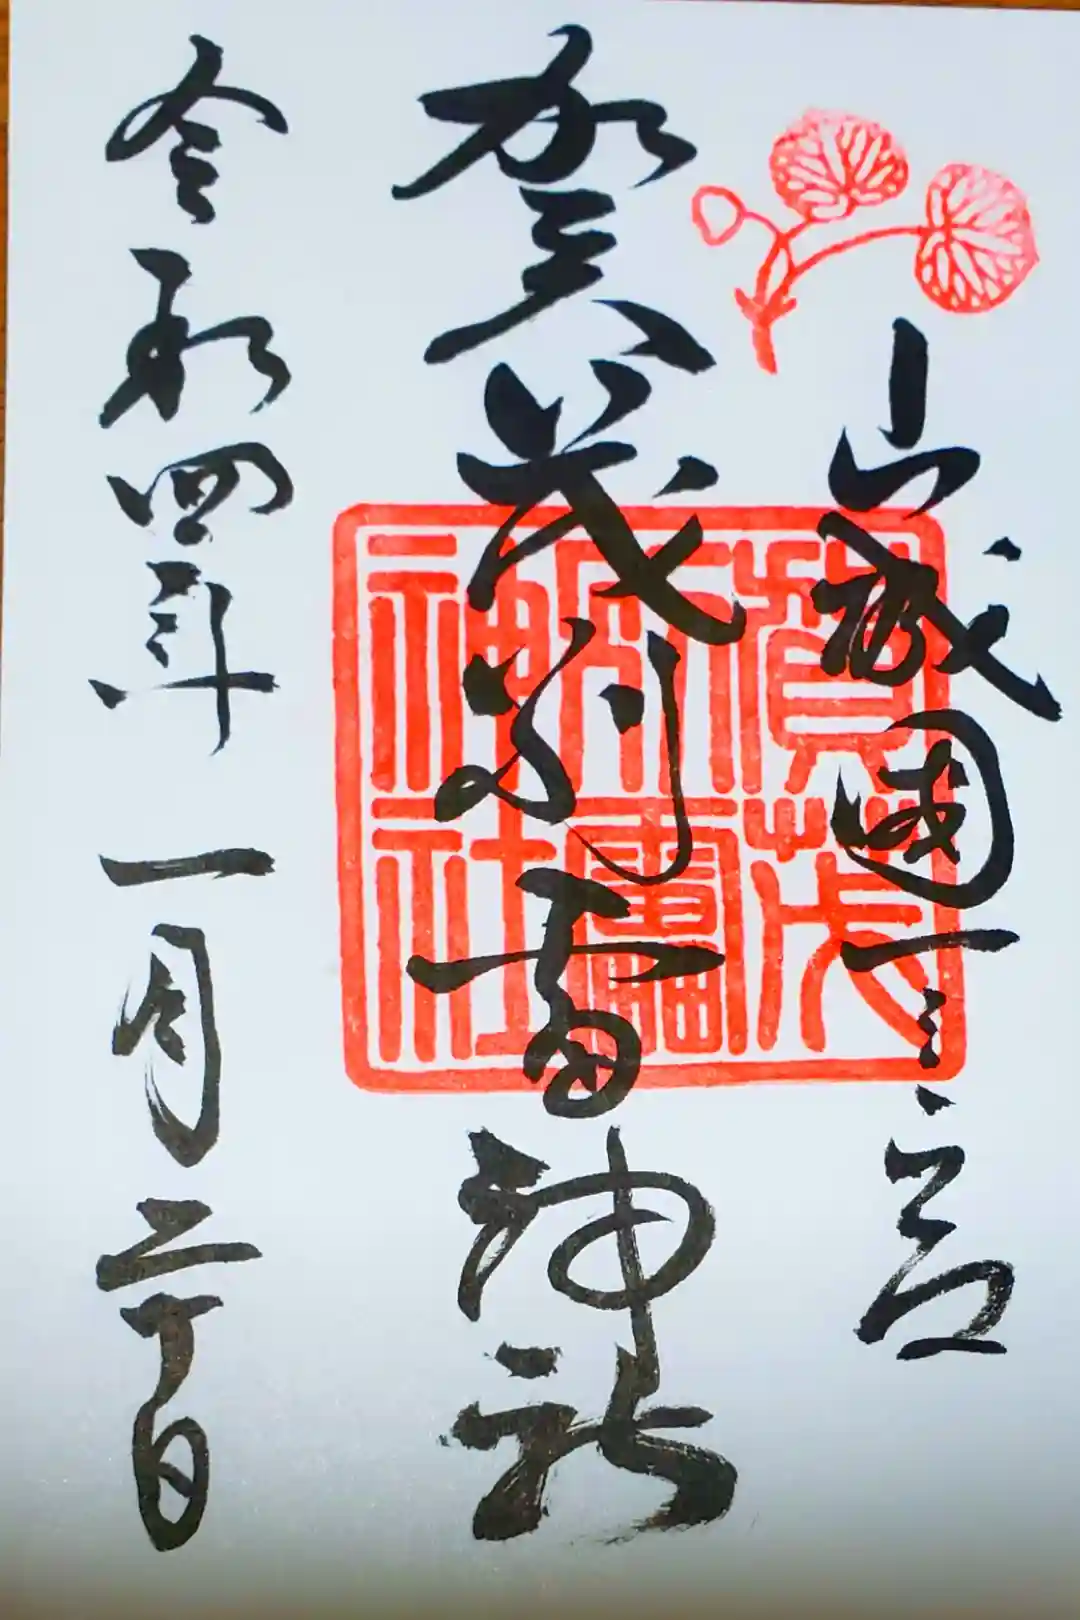 山城國一之宮
賀茂別雷神社
令和四年一月二十日
賀茂
別雷
神社